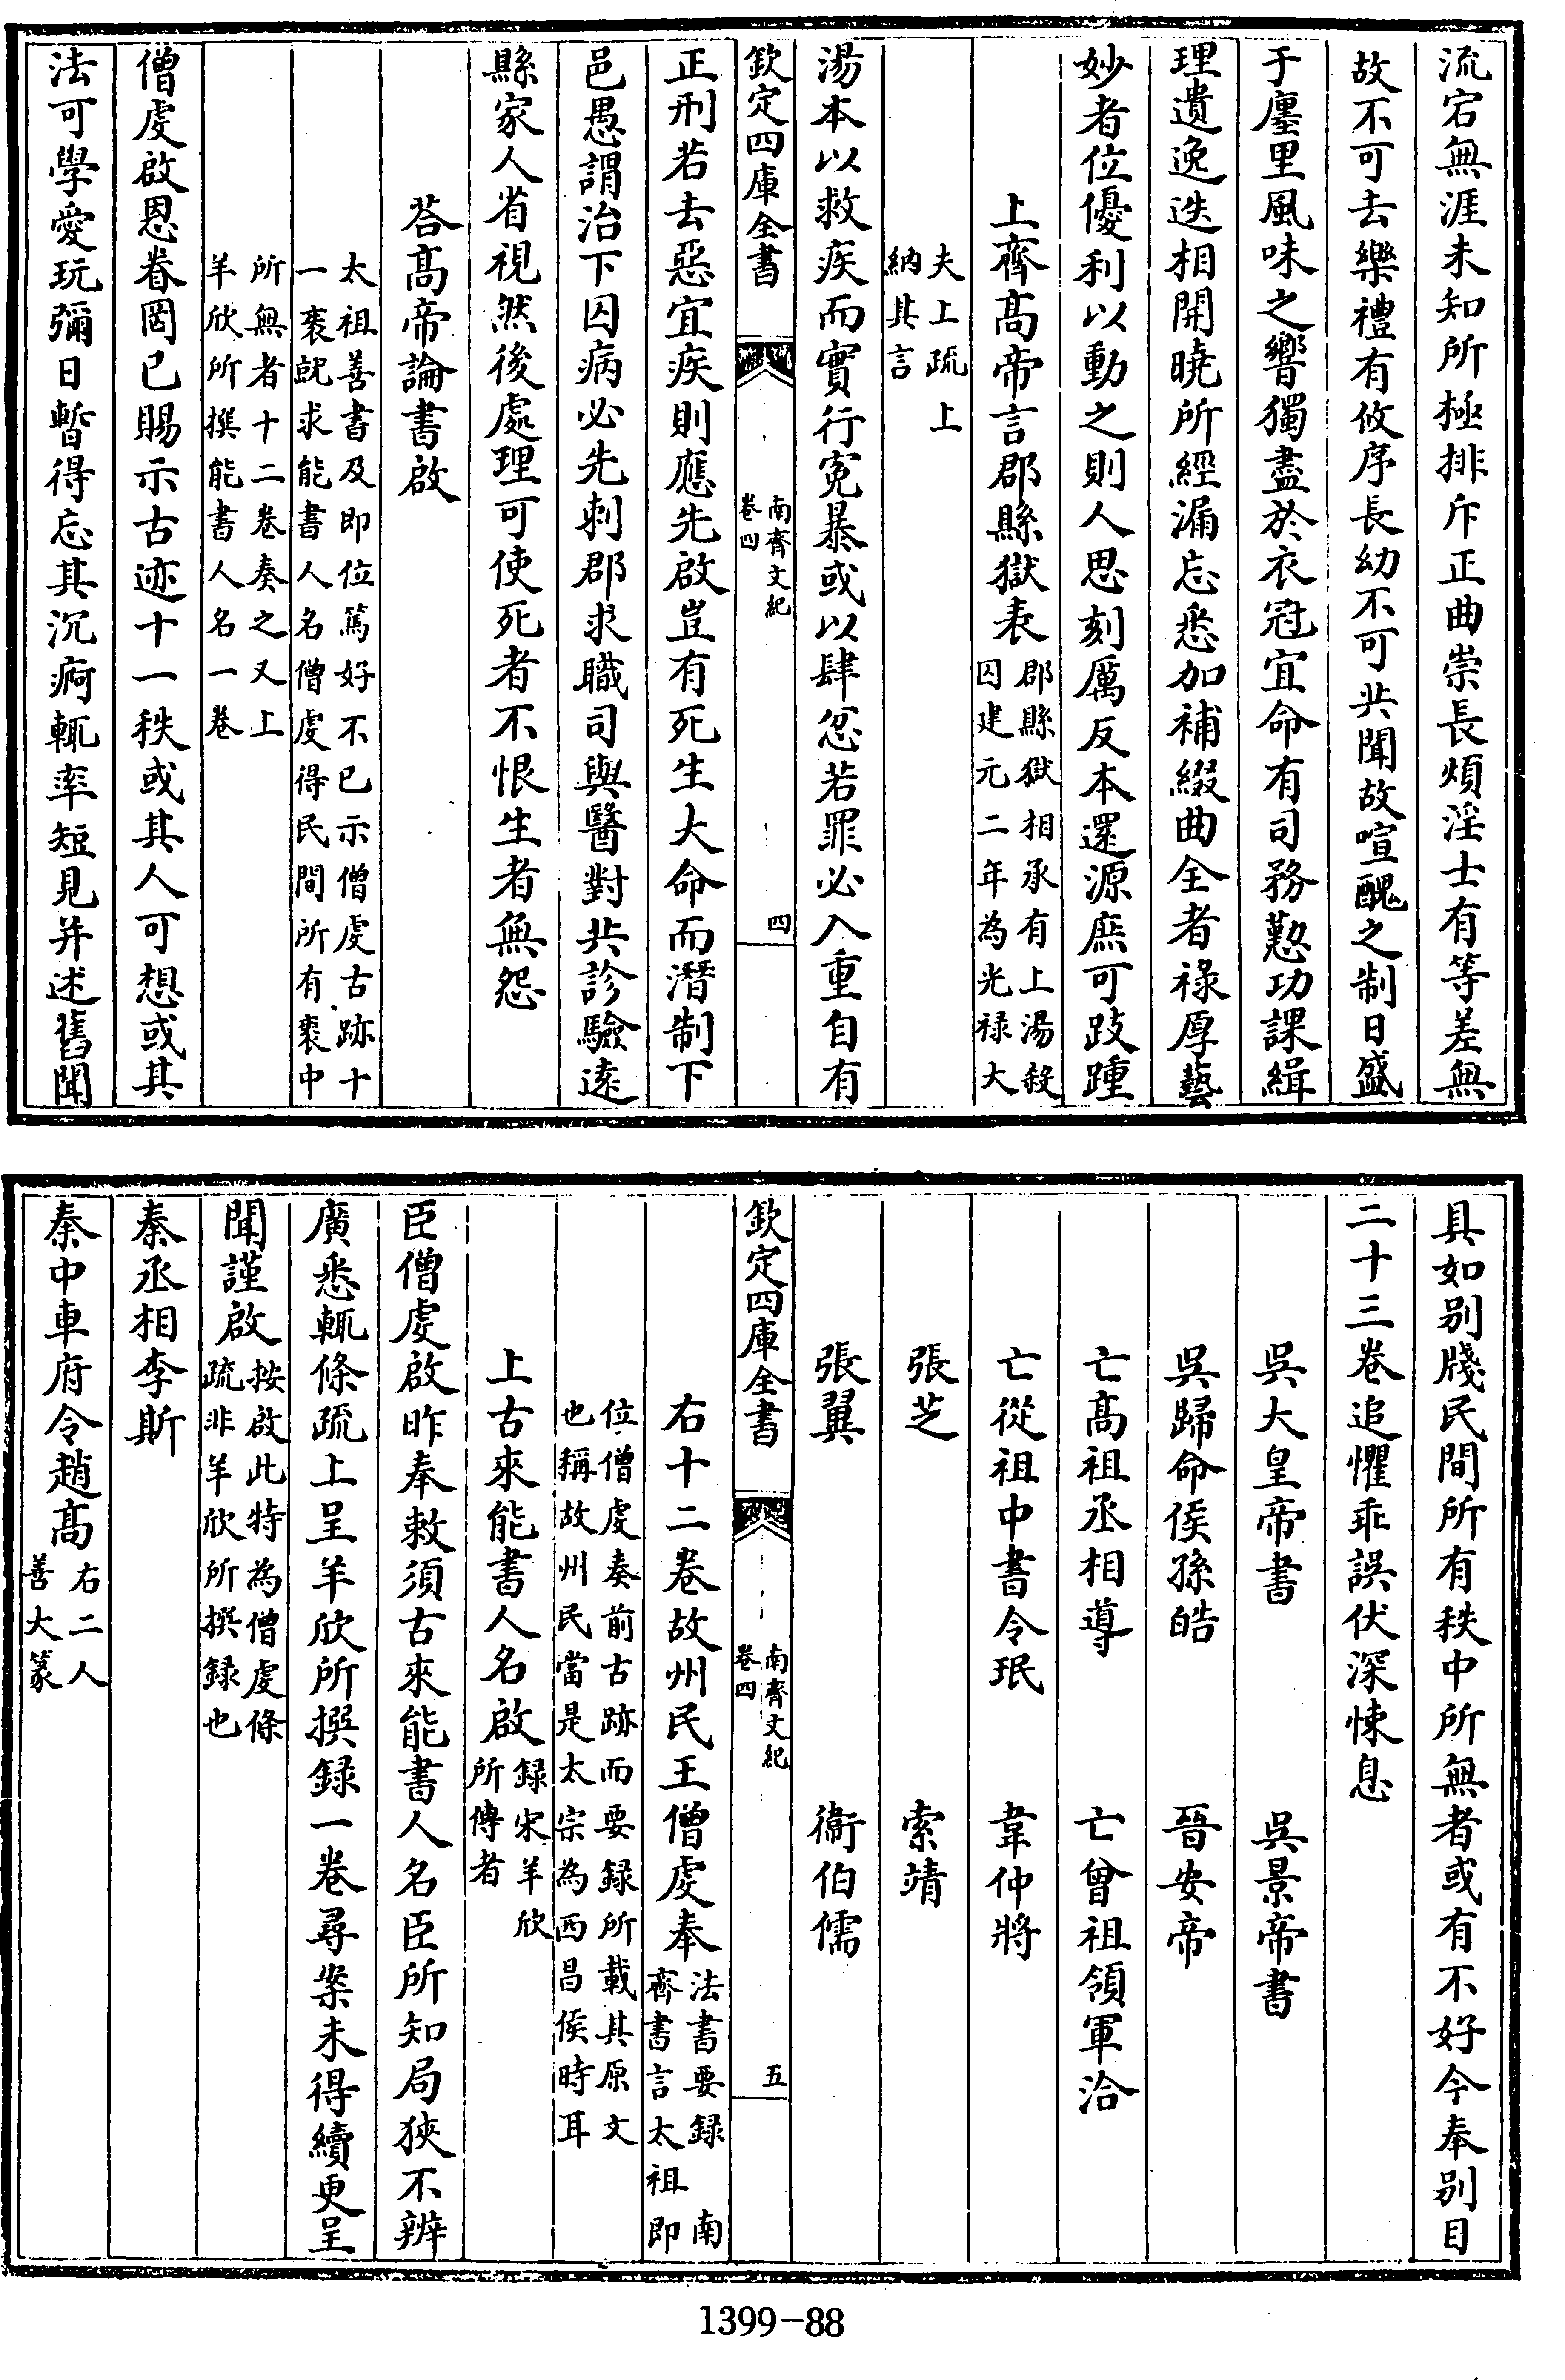 流宕無涯未知所極排斥正曲崇長煩淫士有等差無
故不可去樂禮有攸序長幼不可共聞故喧醜之制日盛
于廛里風味之響獨盡於衣冠宜命有司務懃功課緝
理遺逸迭相開曉所經漏忘悉加補綴曲全者祿厚藝
妙者位優利以動之則人思刻厲反本還源庶可跂踵
上齊髙帝言郡縣獄表郡縣獄相承有上湯殺
囚建元二年為光禄大
夫上疏上
納其言
湯本以救疾而實行寃暴或以肆忿若罪必入重自有
欽定四庫全書
南齊文紀
卷四
四
正刑若去惡宜疾則應先啟豈有死生大命而潛制下
邑愚謂治下囚病必先刺郡求職司與醫對共診驗逺
縣家人省視然後處理可使死者不恨生者無怨
荅髙帝論書啟
太祖善書及即位篤好不已示僧䖍古跡十
一袠就求能書人名僧䖍得民間所有袠中
所無者十二卷奏之又上
羊欣所撰能書人名一卷
僧䖍啟恩眷罔已賜示古迹十一秩或其人可想或其
法可學愛玩彌日暫得忘其沉痾輒率短見并述舊聞
具如别牋民間所有秩中所無者或有不好今奉别目
二十三卷追懼乖誤伏深悚息
吳大皇帝書 吳景帝書
吳歸命侯孫皓 晉安帝
亡髙祖丞相導 亡曾祖領軍洽
亡從祖中書令珉 韋仲將
張芝 索靖
張翼 衞伯儒
欽定四庫全書
南齊文紀
卷四
五
右十二卷故州民王僧䖍奉法書要録 南
齊書言太祖即
位僧䖍奏前古跡而要録所載其原文
也稱故州民當是太宗為西昌侯時耳
上古來能書人名啟録宋羊欣
所傳者
臣僧䖍啟昨奉敕須古來能書人名臣所知局狹不辨
廣悉輒條疏上呈羊欣所撰録一卷尋案未得續更呈
聞謹啟按啟此特為僧䖍條
疏非羊欣所撰録也
秦丞相李斯
秦中車府令趙髙右二人
善大篆
1399-88